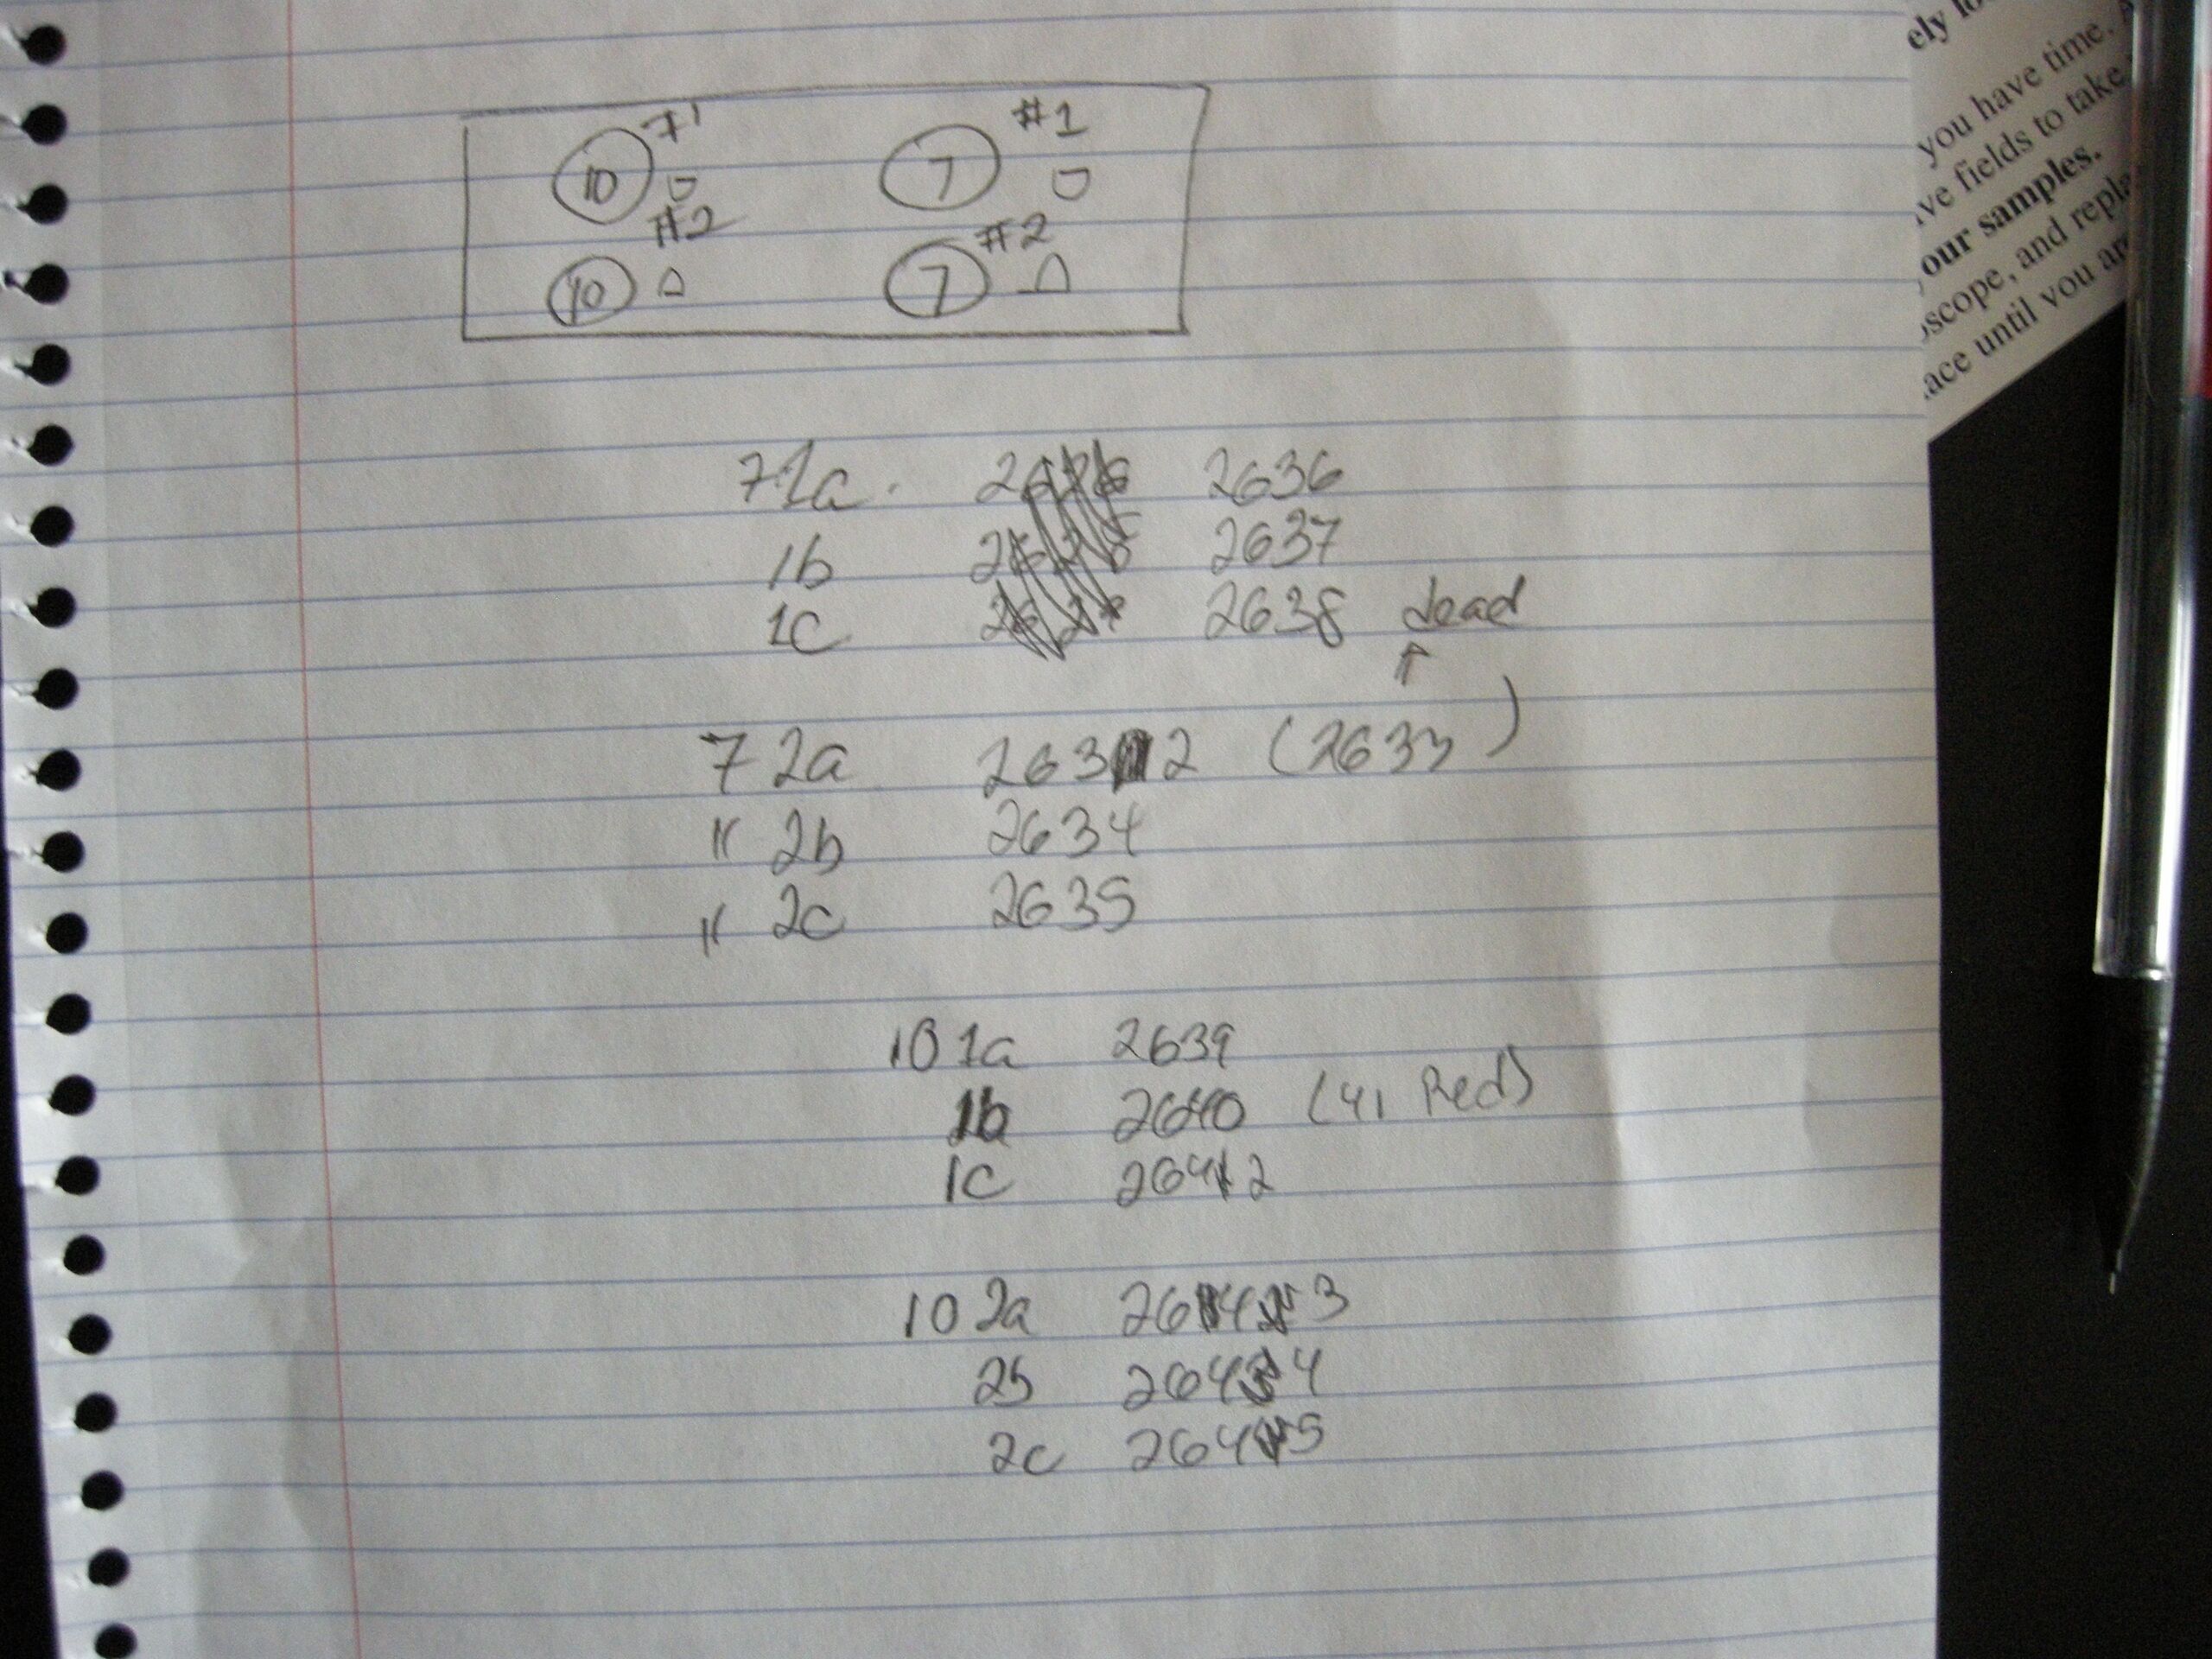 7' #1
10 7
#2 #2
10 7
7 1a. 2636
1b 2637
1c 2638 dead
7 2a 2632 (2633)
" 2b 2634
" 2c 2635
10 1a 2639
1b 2640 (41 Red)
1c 2642
10 2a 2643
2b 2644
2c 2645
ely
you have time.
ve fields to take
our samples.
scope, and repla
ace until you ar